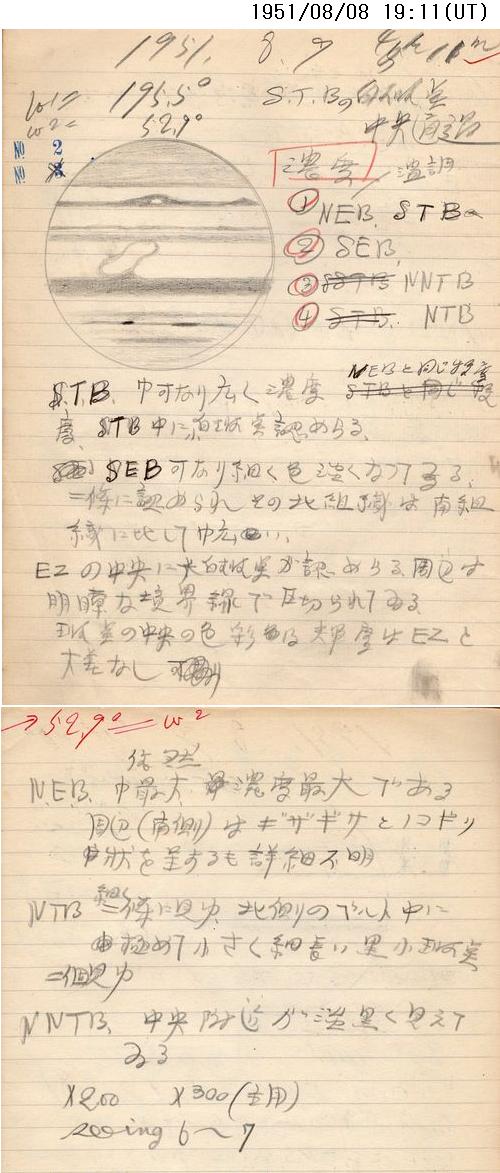 1951/08/08 19:11(UT)
1951. 8. 9 4h 11m
ω1= 195.5°
ω2= 52.9°
S.T.B.の白斑実
中央
No 2
No
濃度/濃調
① NEB. STB
② SEB.
③ NNTB
④ STB. NTB
NEBと同じ程度
S.T.B. 巾可なり広く濃度 STBと同じ
度、STB中に白斑実認めらる、
SEB可なり細く色淡くなってゐる。
二條に認められその北組織は南組
織に比して巾広い、
EZの中央に大白斑実が認めらる周辺は
明瞭な境界線で区切られてゐる
斑実の中央の色彩は輝度はEZと
大差なし
→52.9°=ω2
依然
N.E.B. 巾最大、濃度最大である
周辺(南側)はギザギザとノコギリ
状を呈するも詳細不明
細く
NTB 二條に見ゆ 北側のベルト中に
極めて小さく細長い黒小斑実
二個見ゆ
NNTB、中央附近が淡黒く見えて
ゐる
×200 ×300(主用)
seeing 6〜7